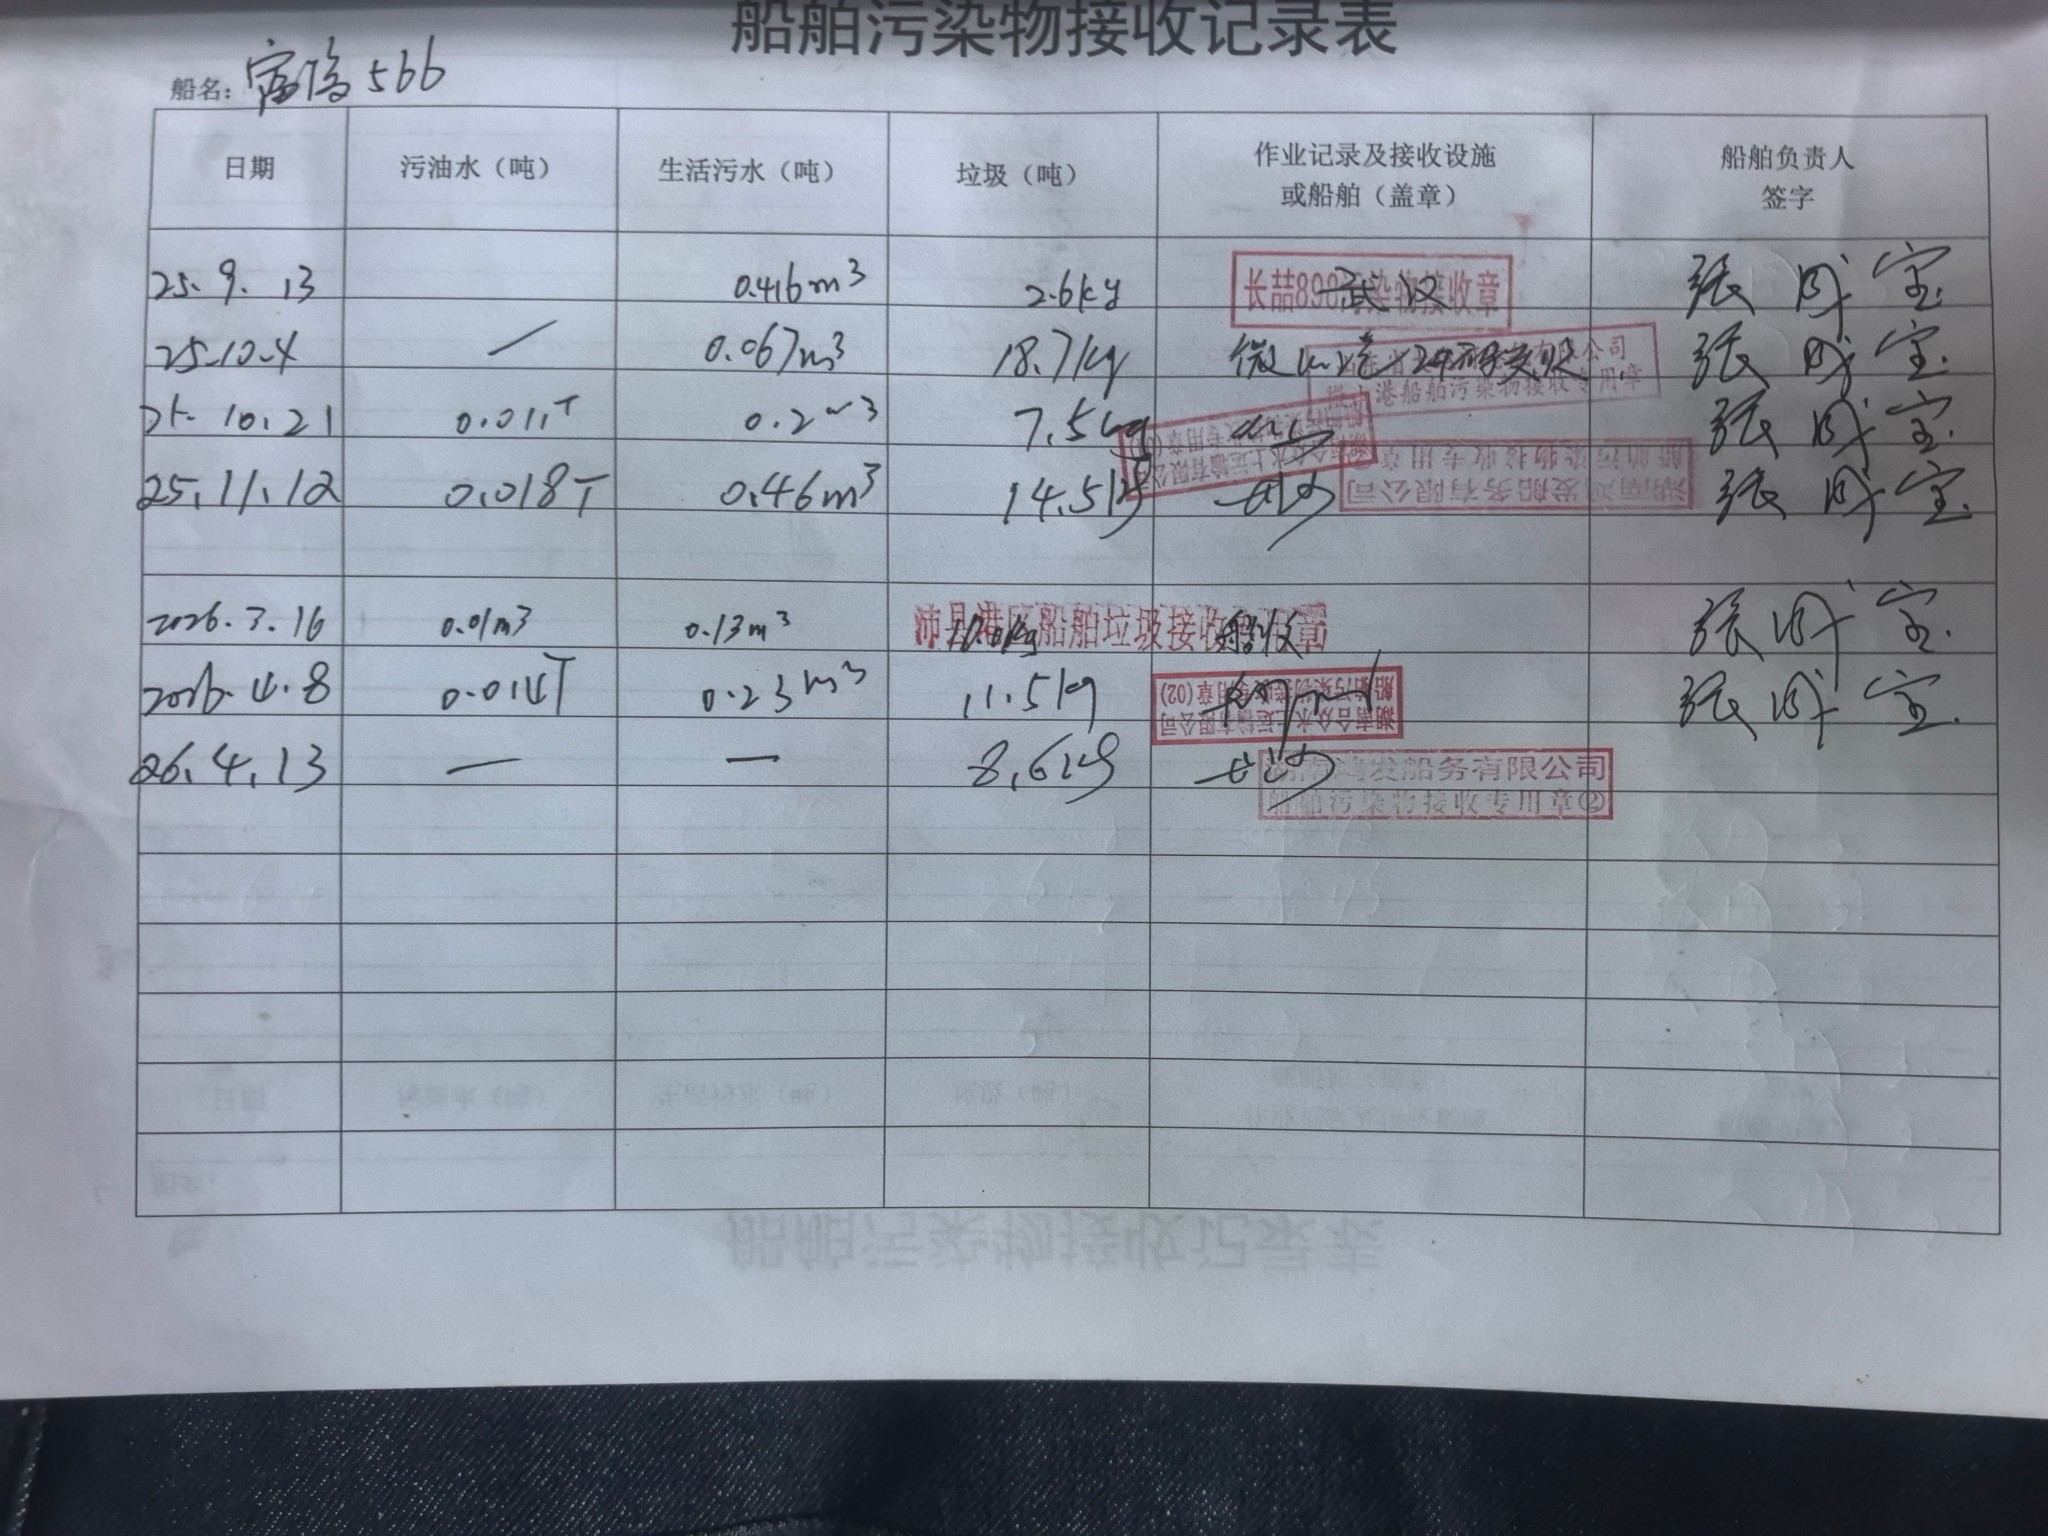 船舶污染物接收记录表
船名: 富 566
日期 污油水（吨） 生活污水（吨） 垃圾（吨） 作业记录及接收设施或船舶（盖章） 船舶负责人签字
25.9.13 0.416m³ 2.6kg 武汉 长喆898污染物接收章 张成宝
25.10.4 — 0.067m³ 18.7kg 微山港 有限公司 微山港船舶污染物接收专用章 张成宝
25.10.21 0.011T 0.2m³ 7.5kg 张成宝
25.11.12 0.018T 0.46m³ 14.5kg 长沙 湖南鸿发船务有限公司 船舶污染物接收专用章 张成宝
2026.3.16 0.01m³ 0.13m³ 沛县港区船舶垃圾接收专用章 张成宝
2026.4.8 0.014T 0.23m³ 11.5kg 湖南合众水上运输有限公司 船舶污染物接收专用章(02) 张成宝
26.4.13 — — 8.6kg 长沙 湖南鸿发船务有限公司 船舶污染物接收专用章②